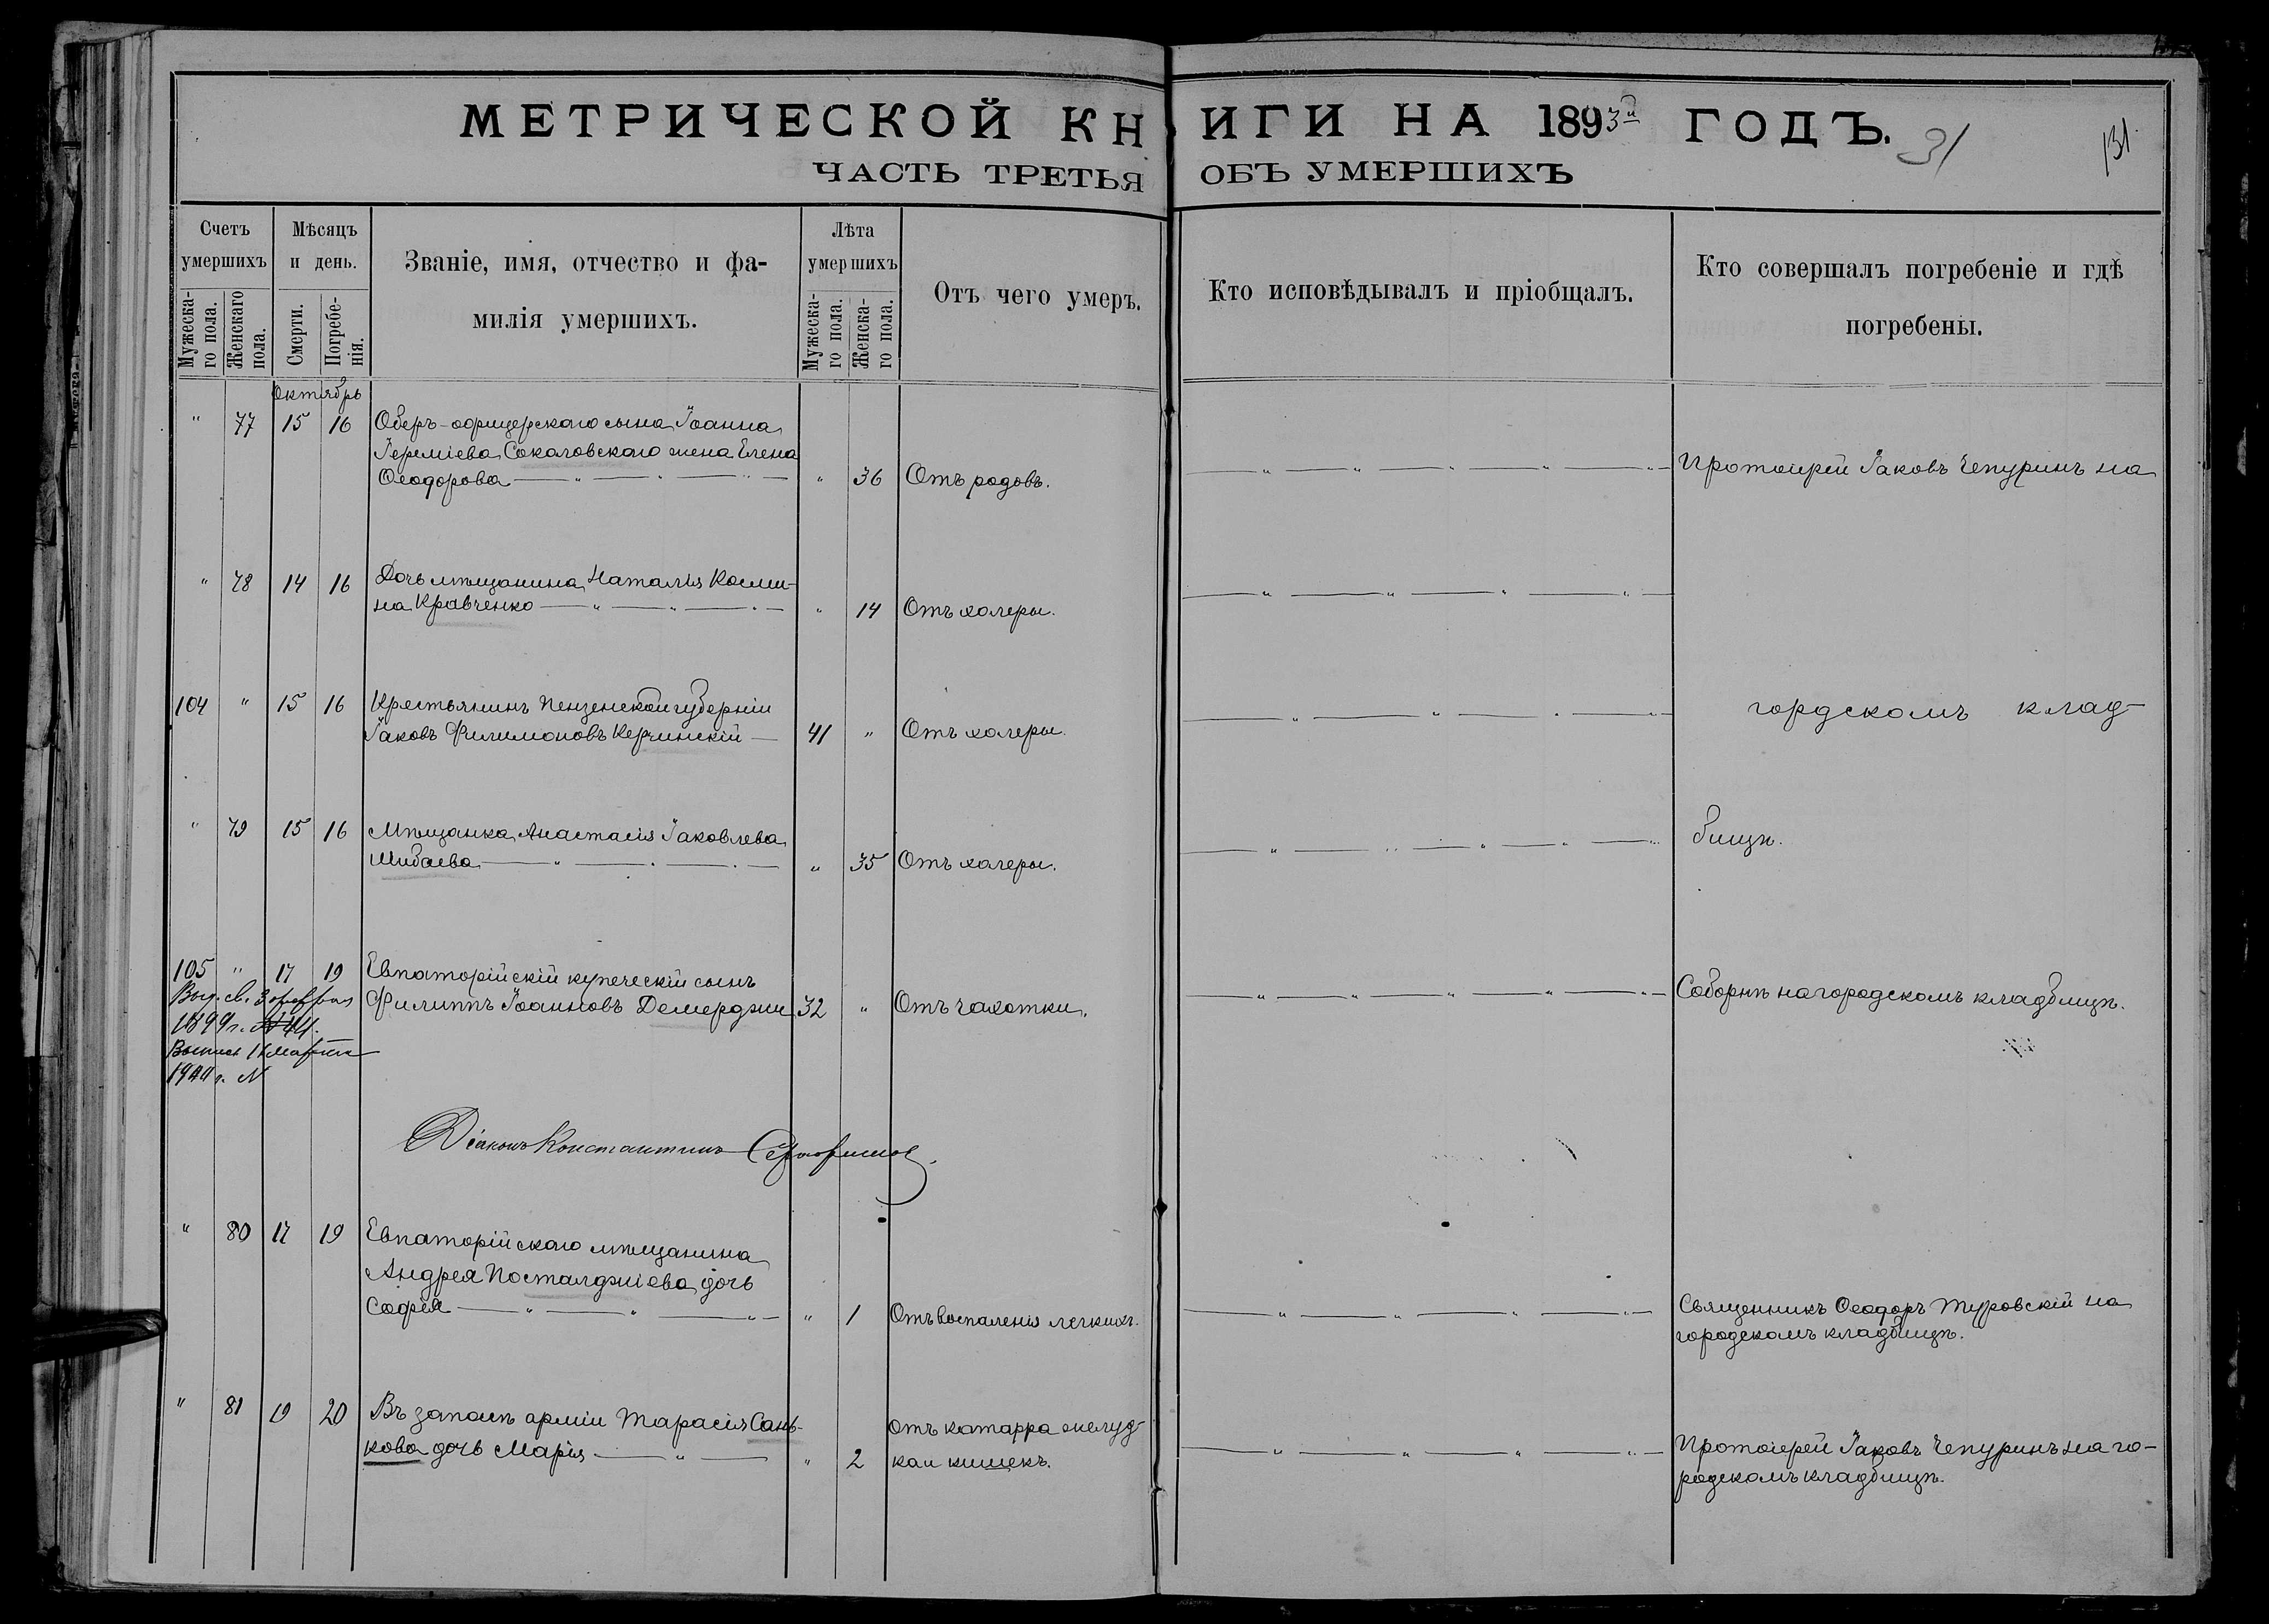 МЕТРИЧЕСКОЙ КНИГИ НА 1893й ГОДЪ.
31
131
ЧАСТЬ ТРЕТЬЯ ОБЪ УМЕРШИХЪ
Счетъ умершихъ
Мужеска-го пола.
Женскаго пола.
Мѣсяцъ и день.
Смерти.
Погребе-нія.
Званіе, имя, отчество и фа-
милія умершихъ.
Лѣта умершихъ
Мужеска-го пола.
Женска-го пола.
Отъ чего умеръ.
Кто исповѣдывалъ и пріобщалъ.
Кто совершалъ погребеніе и гдѣ
погребены.
Октябрь
" 77 15 16 Оберъ-офицерскаго сына Іоанна
Іереміева Соколовскаго жена Елена
Ѳеодорова " 36 Отъ родовъ. Протоіерей Іаковъ Чепуринъ на
" 78 14 16 Дочь мѣщанина Наталія Косми-
на Кравченко " 14 Отъ холеры.
104 " 15 16 Крестьянинъ Пензенской губерніи
Іаковъ Филимоновъ Керчинскій 41 " Отъ холеры. гордскомъ клад-
" 79 15 16 Мѣщанка Анастасія Іаковлева
Шибаева " 35 Отъ холеры. бищѣ.
105 " 17 19 Евпаторійскій купеческій сынъ
Филиппъ Іоанновъ Демерджи 32 " Отъ чахотки. Соборнѣ на городскомъ кладбищѣ.
Выд. св. 3
1899 г. №
1900 г. №
Діаконъ Константинъ Серафимов
" 80 17 19 Евпаторійскаго мѣщанина
Андрея Посталджіева дочь
Софія " 1 Отъ воспаленія легкихъ. Священникъ Ѳеодоръ Туровскій на
городскомъ кладбищѣ.
" 81 19 20 Въ запасѣ арміи Тарасія Сань-
кова дочь Марія " 2 Отъ катарра желуд-
ка и кишекъ. Протоіерей Іаковъ Чепуринъ на го-
родскомъ кладбищѣ.